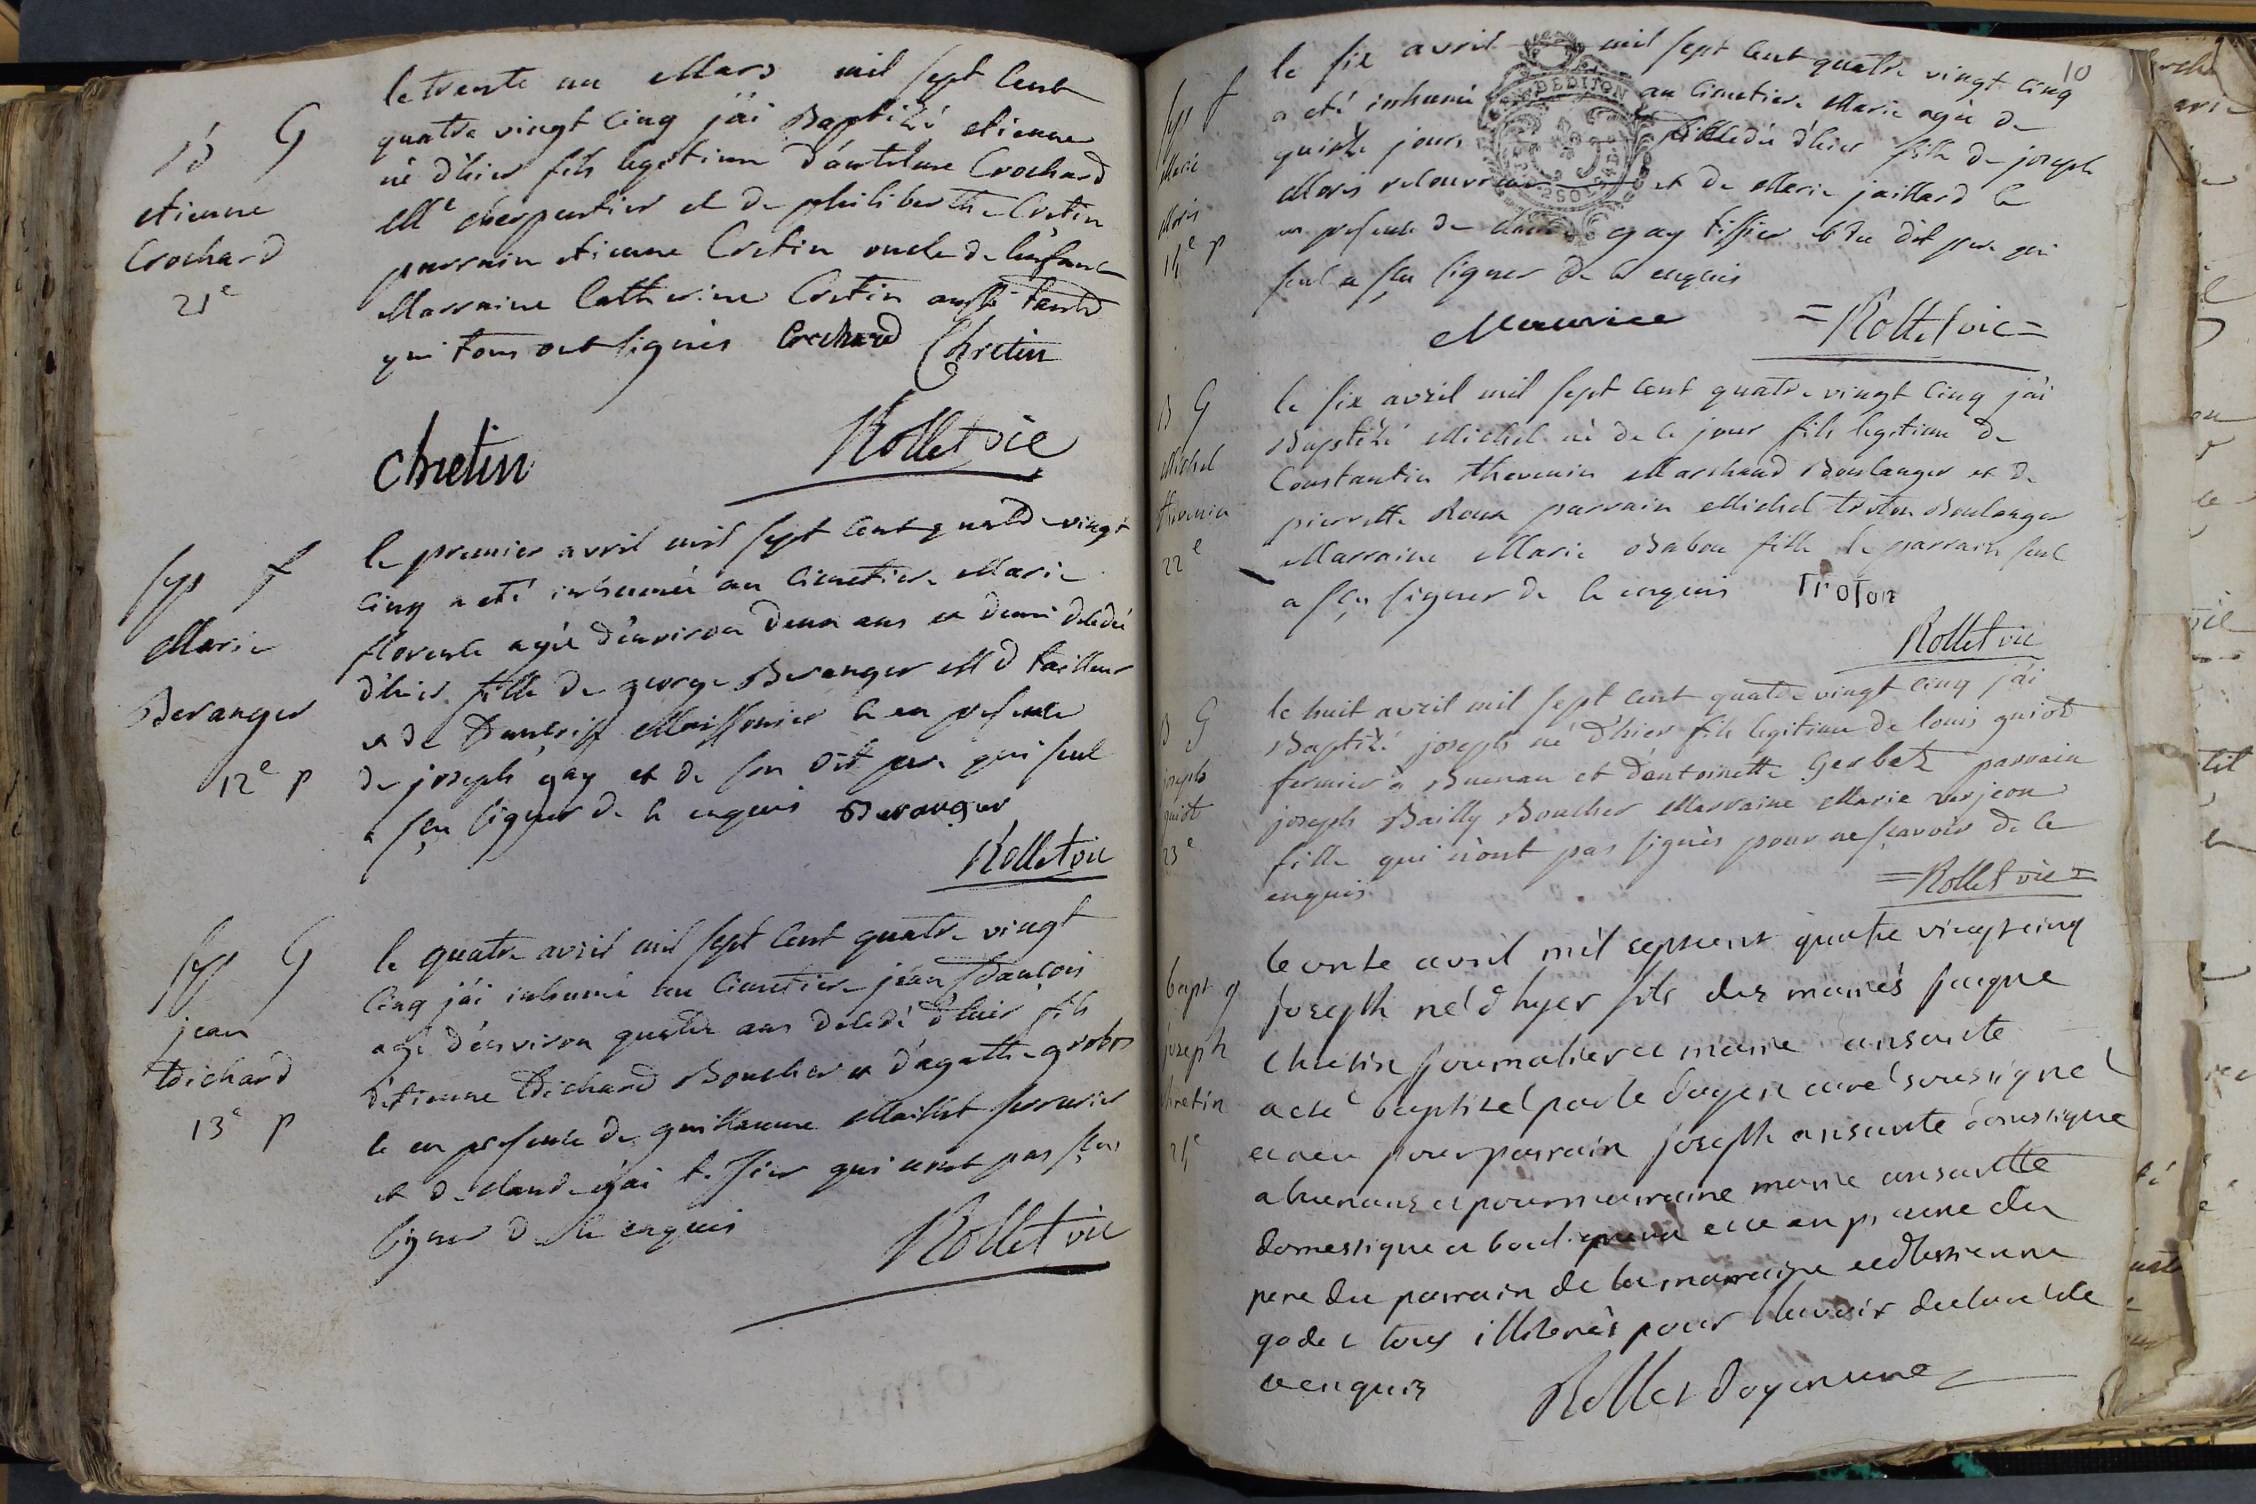 B G
etienne
Crochard
21e
le trente un Mars mil sept Cent
quatre vingt Cinq j'ai Baptisé etienne
né d'hier fils legitime d'antelme Crochard
Me charpentier et de philiberthe Cretin
parrain etienne Cretin oncle de l'enfant
Marraine Catherine Cretin aussi tante
qui tous ont signés Crochard Chretin
chretin Rollet vic
sep f
Marie
Beranger
12e p
le premier avril mil sept Cent quatre vingt
Cinq a eté inhumée au Cimetiere Marie
florence agée d'environ deux ans et demi dededée
d'hier fille de george Beranger Md tailleur
et de Maissonier ce en presence
de joseph gay et de son dit pere qui seul
a sçu signer de ce enquis Beranger
Rollet vic
sep G
jean
Dichard
13e p
le quatre avril mil sept Cent quatre vingt
Cinq j'ai inhumé au Cimetiere jean françois
agé d'environ quatre ans dededé d'hier fils
d'etienne Dichard Boucher et d'agathe grobos
ce en presence de guillaume Maillet serrurier
et de claude gai tissier qui n'ont pas sçus
signer de ce enquis
Rollet vic
10
sep f
Marie
Moris
14e p
le six avril mil sept Cent quatre vingt Cinq
a eté inhumé au Cimetiere Marie agée de
quinze jours dededée d'hier fille de joseph
Moris et de Marie jaillard ce
en presence de claude gay tissier et du dit pere qui
seul a sçu signer de ce enquis
Maurice =Rollet vic=
B G
Michel
thevenin
22e
le six avril mil sept Cent quatre vingt Cinq j'ai
Baptisé Michel né de ce jour fils legitime de
Constantin thevenin Marchand Boulanger et de
pierrette Roux parrain Michel troton Boulanger
Marraine Marie Babou fille le parrain seul
a sçu signer de ce enquis Troton
Rollet vic
B G
joseph
guiot
23e
le huit avril mil sept cent quatre vingt cinq j'ai
Baptisé joseph né d'hier fils legitime de louis guiot
fermier à Buenan et d'antoinette Gerbet parrain
joseph Bailly Boucher Marraine Marie verjeon
fille qui n'ont pas signés pour ne sçavoir de ce
enquis =Rollet vic=
bapt g
joseph
chretin
24e
le onze avril mil septcent quatre vingt cinq
joseph né d'hyer fils des mariés jacque
chretin journalier et marie ansaute
a eté baptisé par le doyen curé soussigné
et a eu pour parrain joseph ansaute domestique
a buenans et pour marraine marie ansautte
domestique a ce en presence du
pere du parrain de la marraine et d'estienne
godet tous illiterés pour l'avoir declaré de
ce enquis Rollet doyen curé